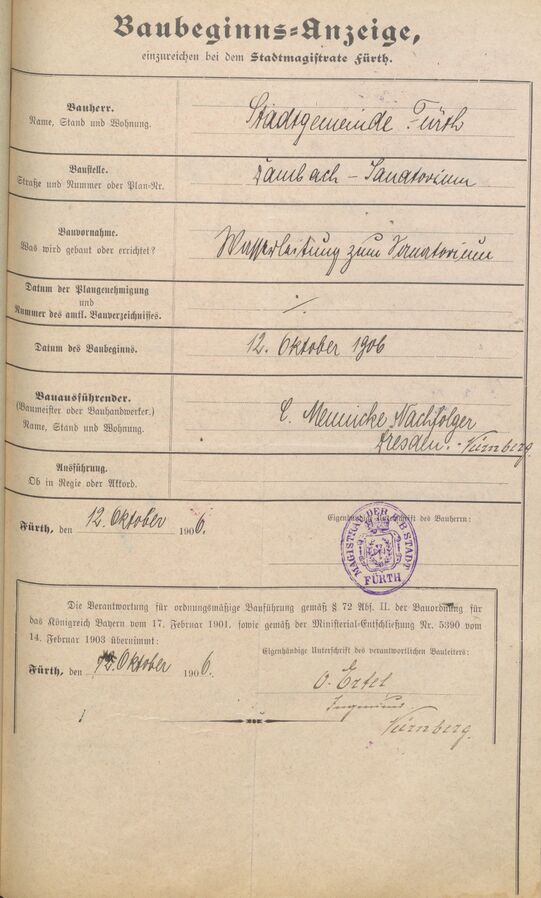 Baubeginns-Anzeige,
einzureichen bei dem Stadtmagistrate Fürth.
Bauherr.
Name, Stand und Wohnung.
Stadtgemeinde Fürth
Baustelle.
Straße und Nummer oder Plan-Nr.
Dambach - Sanatorium
Bauvornahme.
Was wird gebaut oder errichtet?
Wasserleitung zum Sanatorium
Datum der Plangenehmigung
und
Nummer des amtl. Bauverzeichnisses.
./.
Datum des Baubeginns.
12. Oktober 1906
Bauausführender.
(Baumeister oder Bauhandwerker.)
Name, Stand und Wohnung.
C. Mennicke Nachfolger
Dresden.-Nürnberg.
Ausführung.
Ob in Regie oder Akkord.
Fürth, den 12. Oktober 1906.
Eigenhändige Unterschrift des Bauherrn:
MAGISTRAT DER K.B. STADT
FÜRTH
Die Verantwortung für ordnungsmäßige Bauführung gemäß § 72 Abs. II. der Bauordnung für
das Königreich Bayern vom 17. Februar 1901, sowie gemäß der Ministerial-Entschließung Nr. 5390 vom
14. Februar 1903 übernimmt:
Fürth, den 12. Oktober 1906.
Eigenhändige Unterschrift des verantwortlichen Bauleiters:
O. Ertel
Ingenieur
Nürnberg.